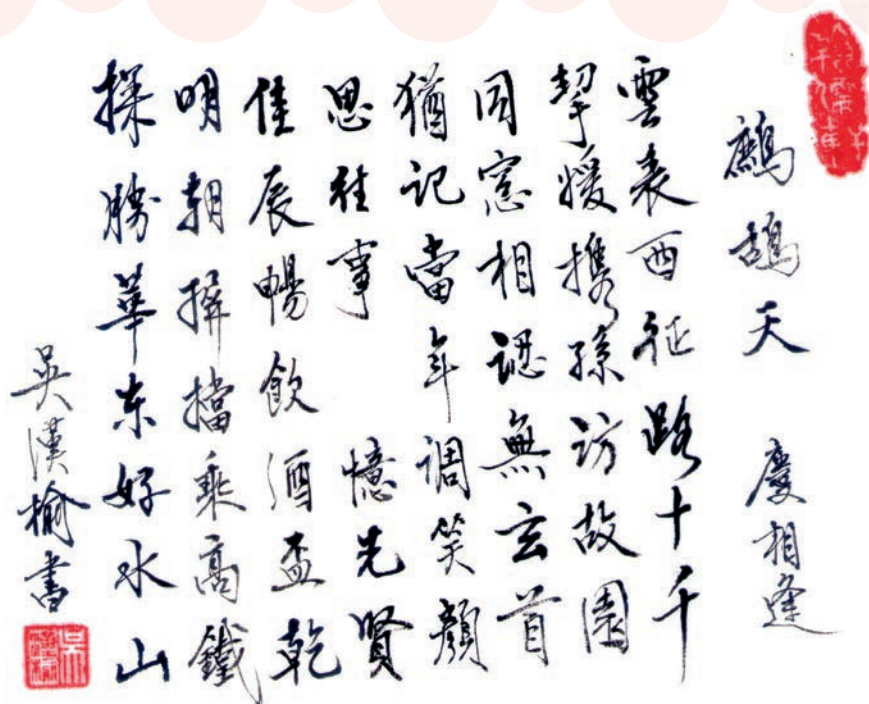 鷓鴣天 慶相逢
雲表西征路十千
挈媛攜孫訪故園
同窓相認無玄首
猶記當年調笑顏
思往事 憶先賢
佳辰暢飲酒盃乾
明朝摒擋乘高鐵
探勝華东好水山
吳漢榆書